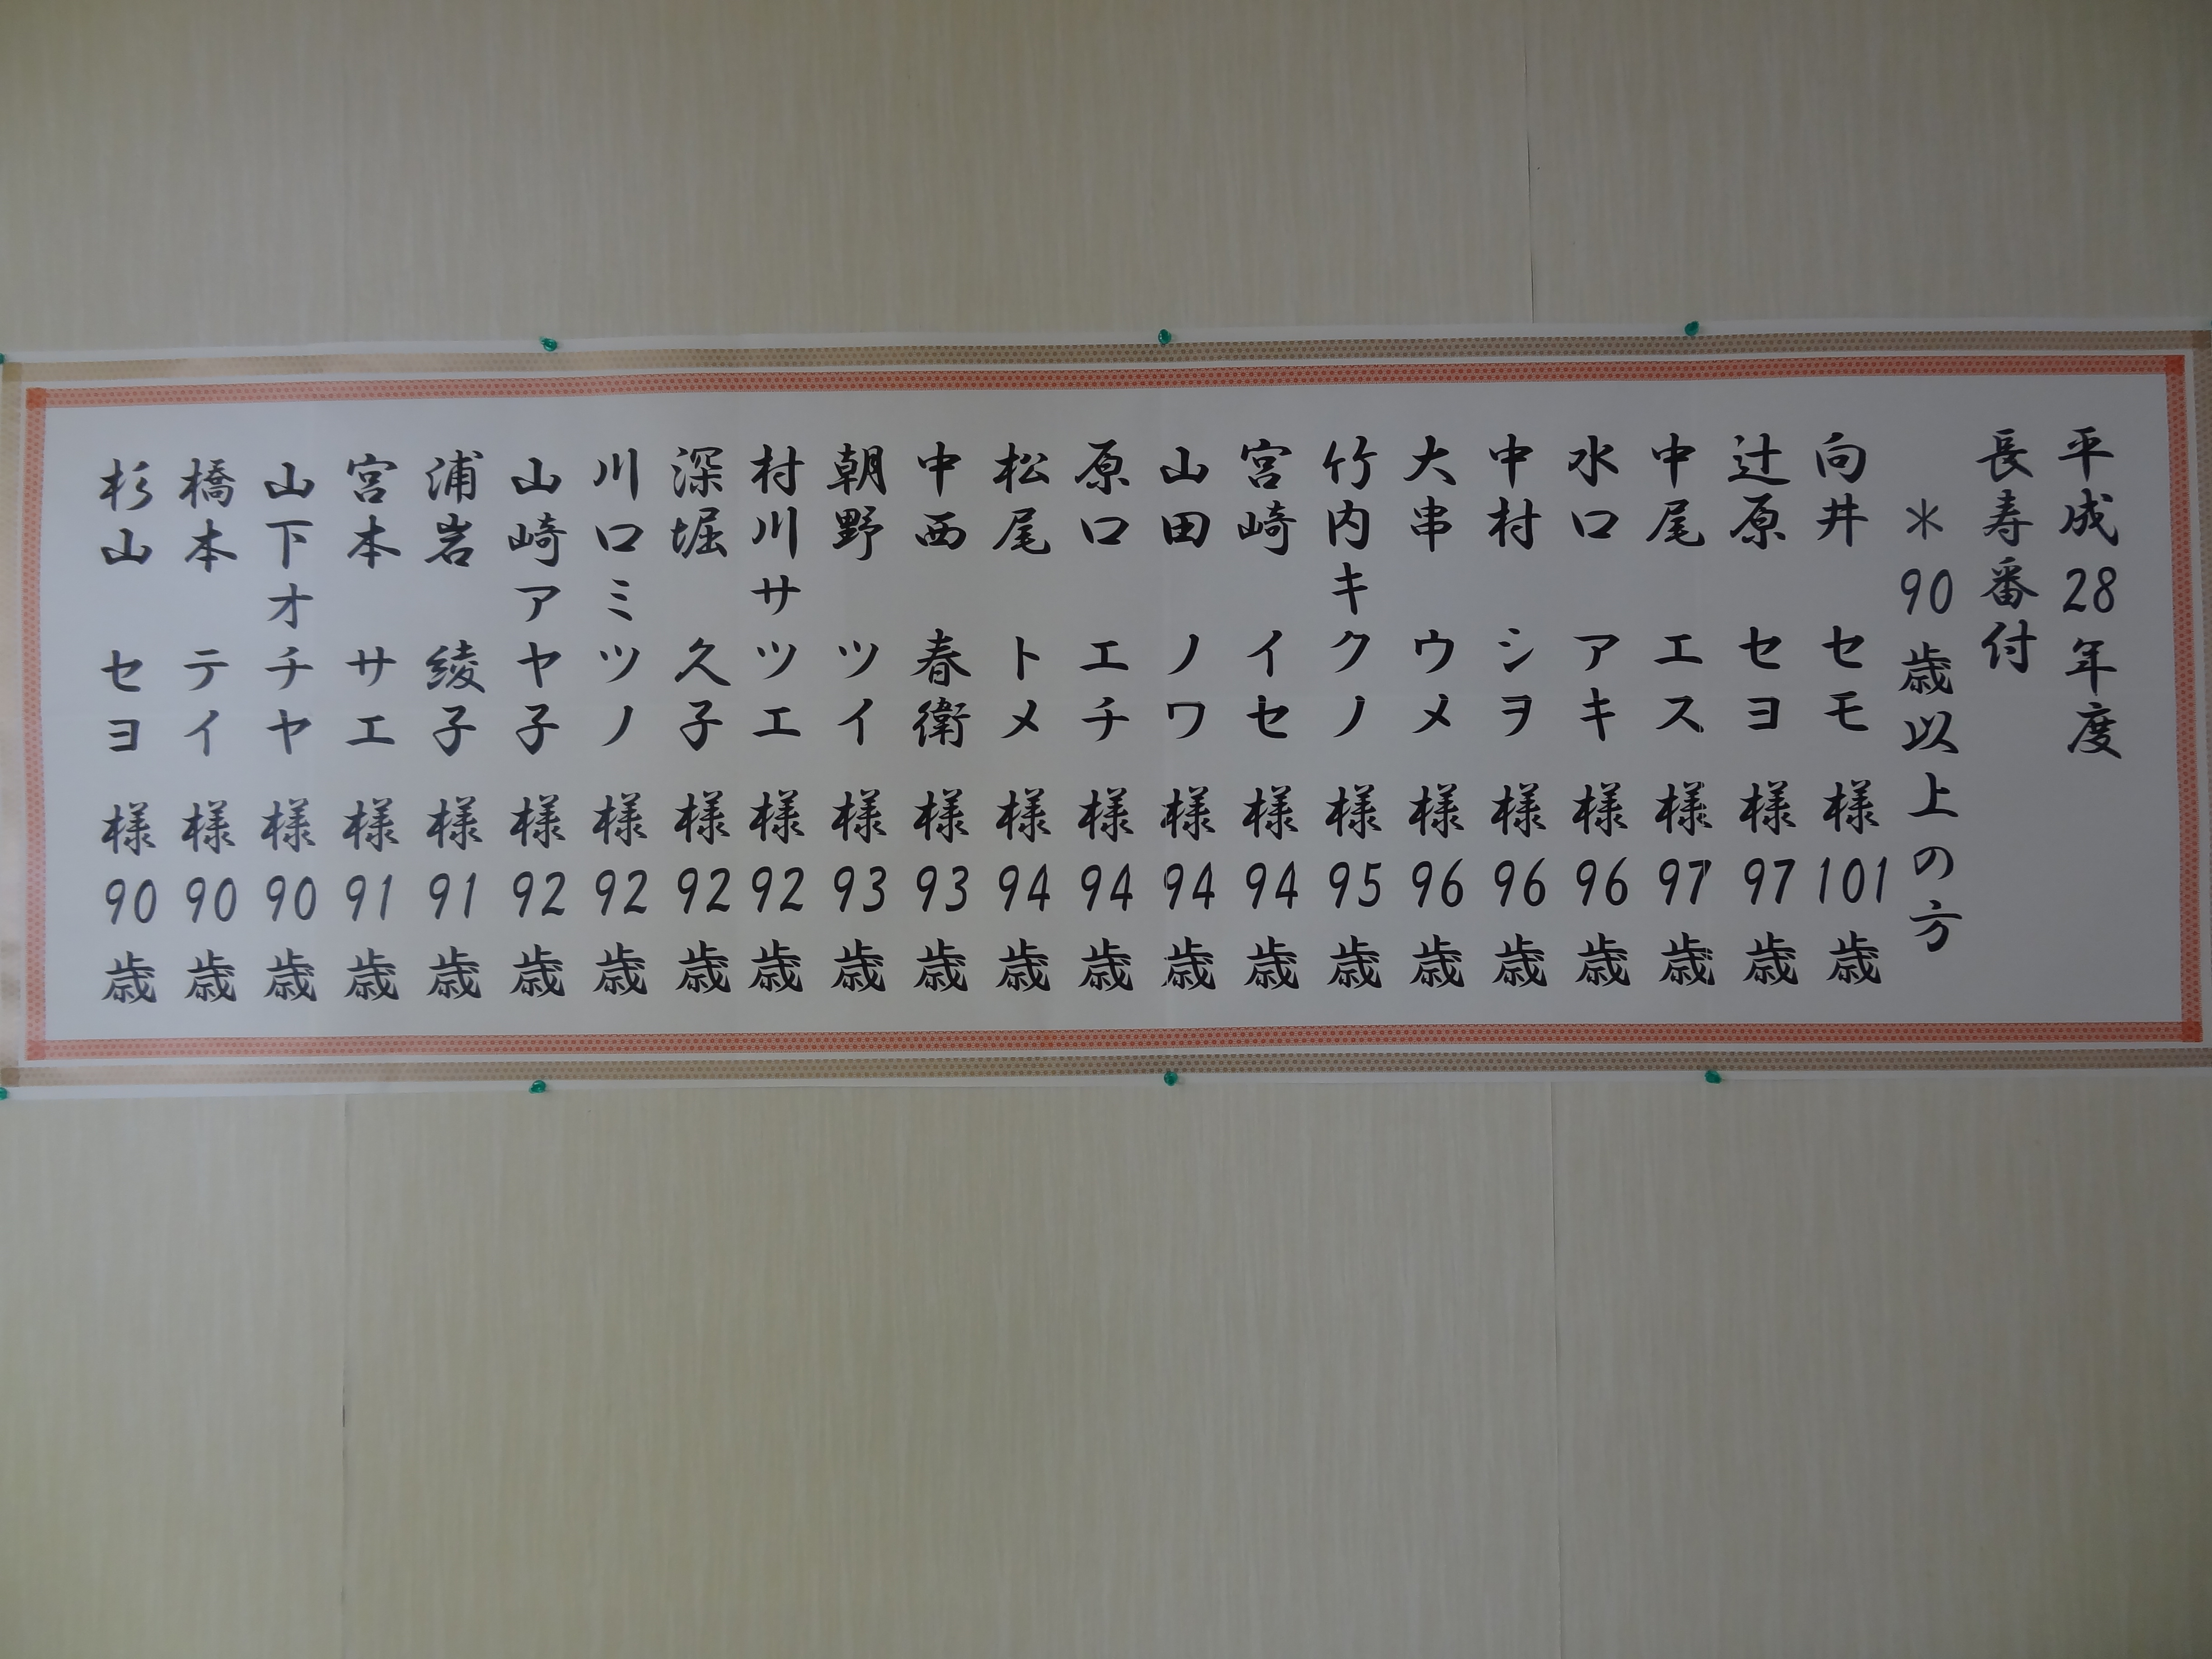 平成28年度
長寿番付
＊90歳以上の方
向井 セモ 様 101歳
辻原 セヨ 様 97歳
中尾 エス 様 97歳
水口 アキ 様 96歳
中村 シヲ 様 96歳
大串 ウメ 様 96歳
竹内キクノ 様 95歳
宮崎 イセ 様 94歳
山田 ノワ 様 94歳
原口 エチ 様 94歳
松尾 トメ 様 94歳
中西 春衛 様 93歳
朝野 ツイ 様 93歳
村川サツエ 様 92歳
深堀 久子 様 92歳
川口ミツノ 様 92歳
山崎アヤ子 様 92歳
浦岩 綾子 様 91歳
宮本 サエ 様 91歳
山下オチヤ 様 90歳
橋本 テイ 様 90歳
杉山 セヨ 様 90歳